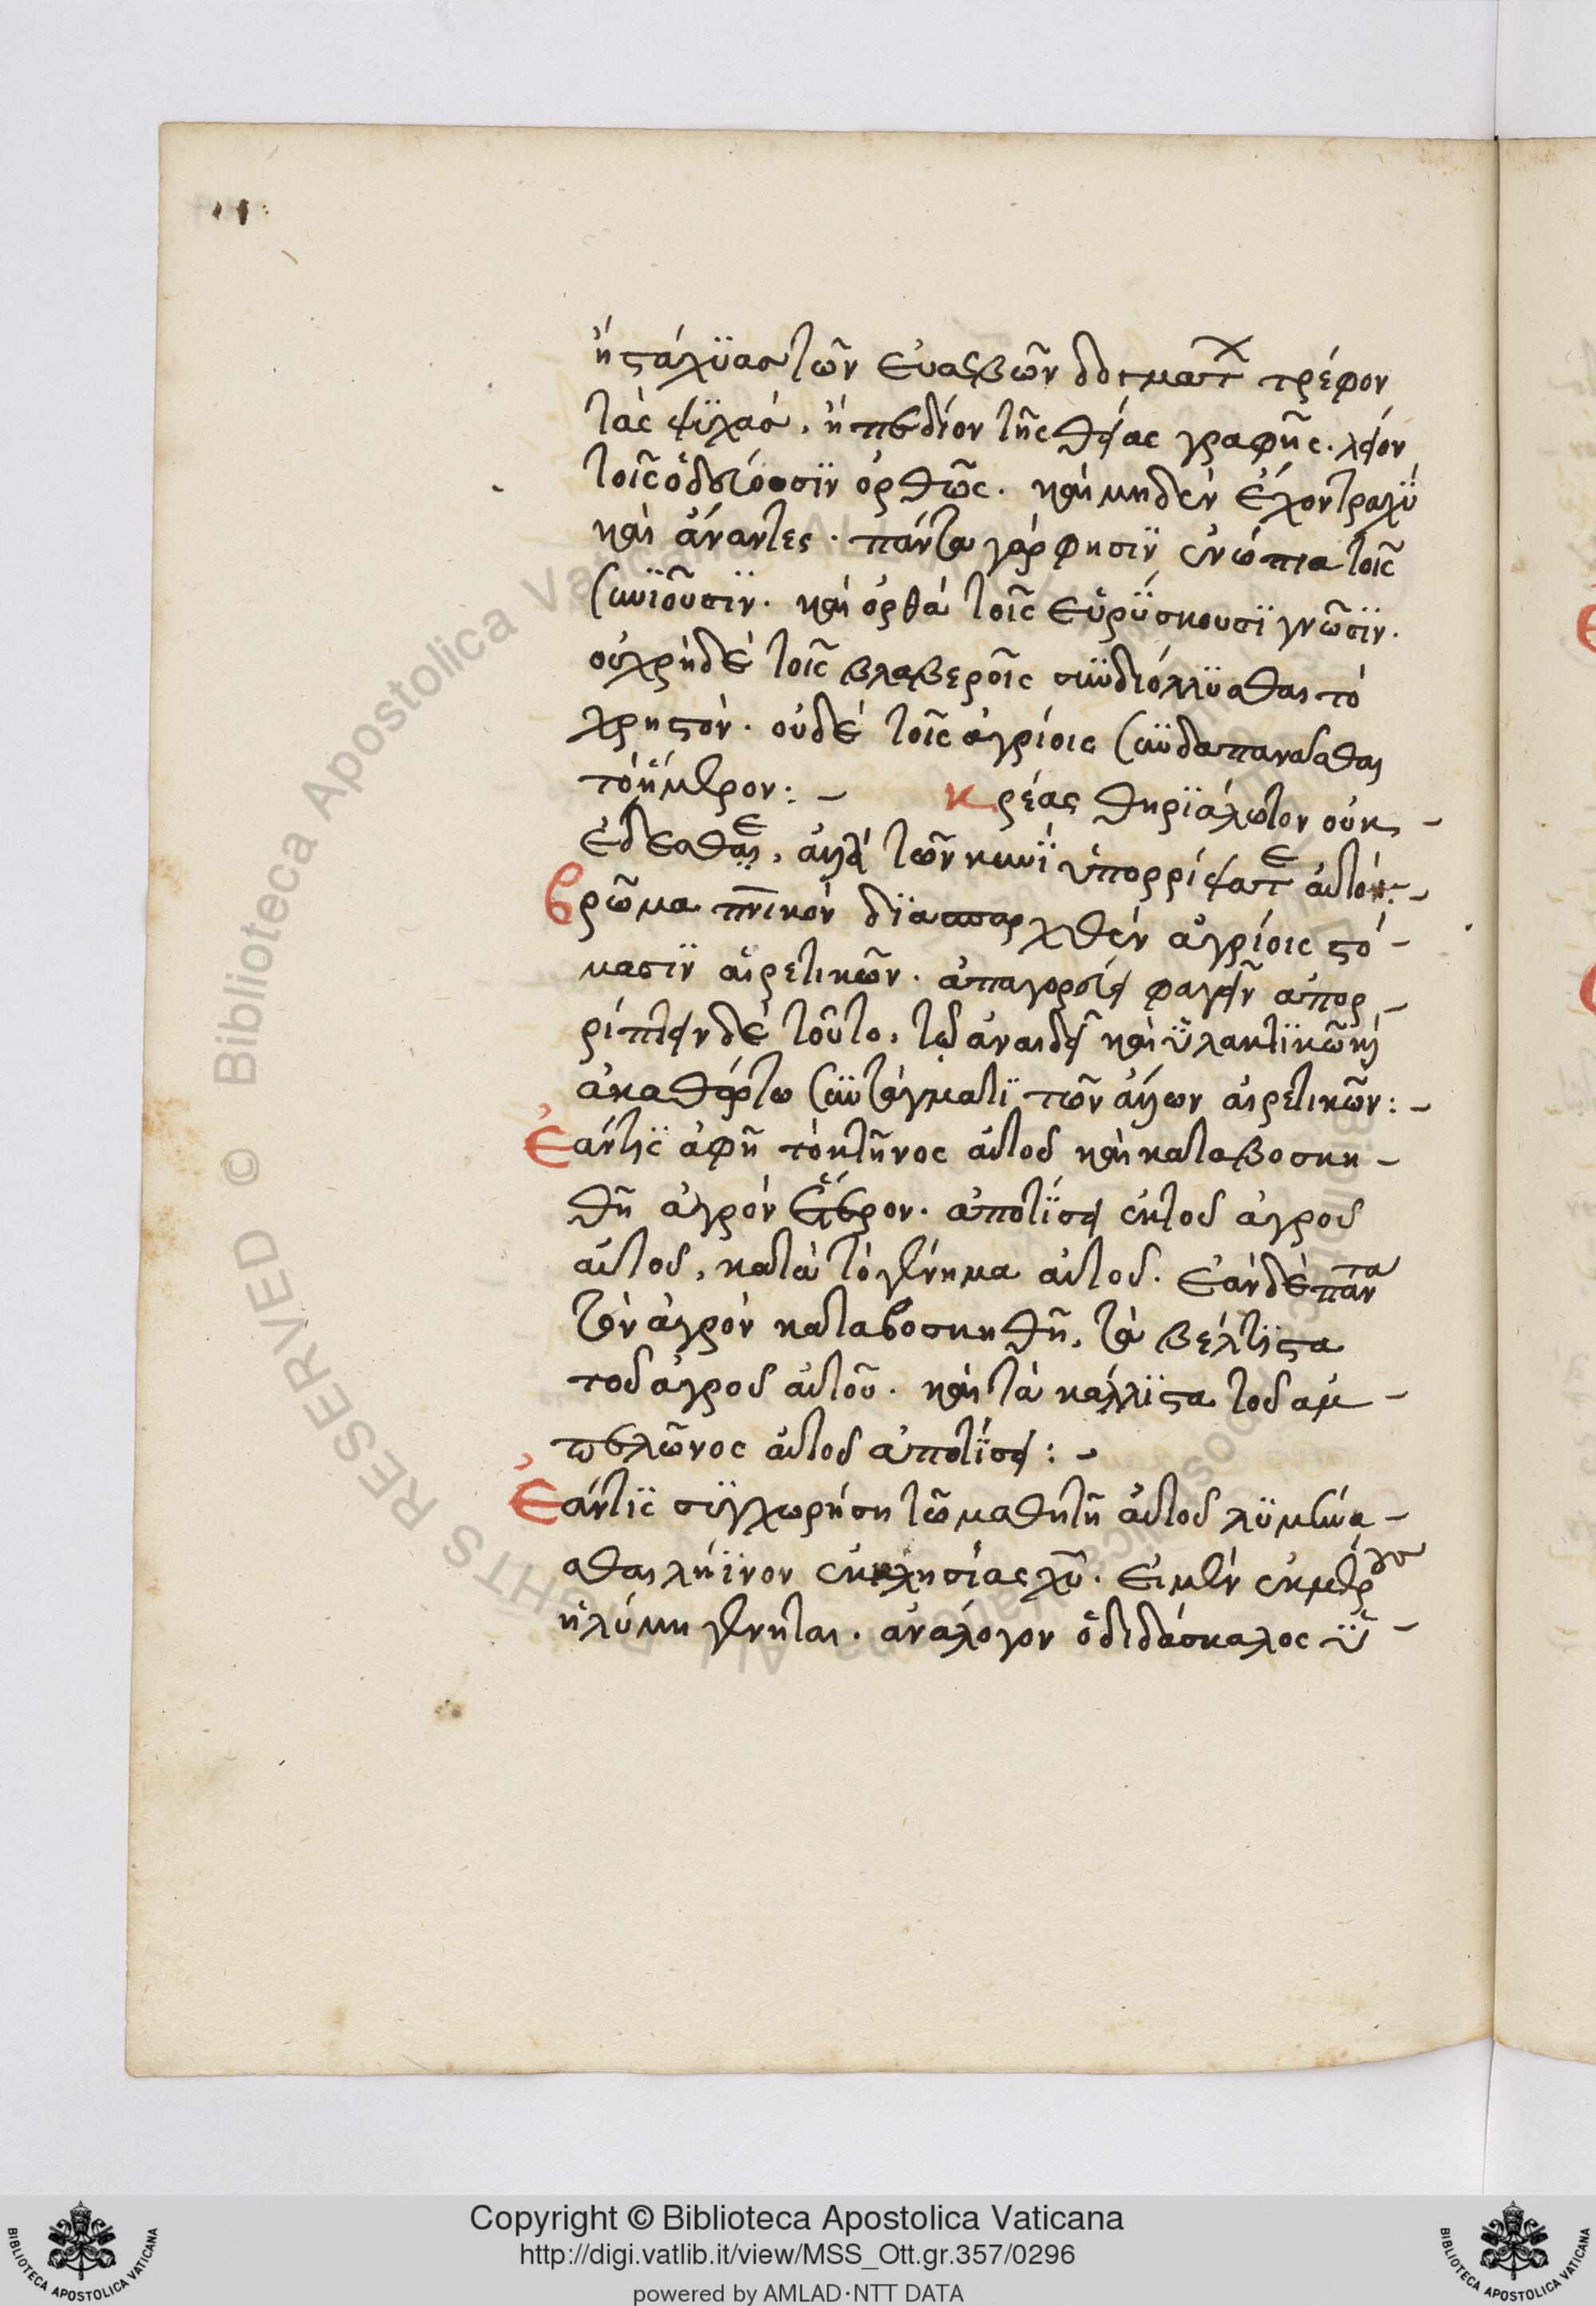 ἢ στάχϋας τῶν εὐσεβῶν δογματ τρέφον
τὰς ψϋχάς, ἢ πεδίον τῆς θείας γραφῆς. λεῖον
τοῖς ὁδεύουσϊν ὀρθῶς. καὶ μηδὲν ἔχον τραχῢ
καὶ ἄναντες. πάντα γάρ φησϊν ἐνώπια τοῖς
συνϊοῦσϊν. καὶ ὀρθὰ τοῖς εὑρΐσκουσϊ γνῶσϊν.
οὐ χρὴ δὲ τοῖς βλαβεροῖς συνδιόλλϋσθαι τὸ
χρηστόν. οὐδὲ τοῖς ἀγρίοις συνδαπανᾶσθαι
τὸ ἥμερον: – Κρέας θηρϊάλωτον οὐκ –
ἔδεσθαι, ἀλλὰ τῶν κυνῒ ὑπορρίψατε αὐτόν: –
Βρῶμα πνικὸν δϊασπαρχθὲν ἀγρίοις στό –
μασϊν αἱρετικῶν. ἀπαγορεύει φαγεῖν ἀπορ –
ρίπτειν δὲ τοῦτο, τῷ ἀναιδεῖ καὶ ὑλακτϊκῶ καὶ
ἀκαθάρτω συντάγματϊ τῶν ἄλλων αἱρετικῶν: –
Ἐάν τϊς ἀφῆ τὸ κτῆνος αὐτοῦ καὶ καταβοσκη –
θῆ ἀγρὸν ἕτερον. ἀποτΐσει ἐκ τοῦ ἀγροῦ
αὐτοῦ, κατὰ τὸ γένημα αὐτοῦ. Ἐὰν δὲ πάντα
τὸν ἀγρὸν καταβοσκηθῆ, τὰ βέλτϊστα
τοῦ ἀγροῦ αὐτοῦ. καὶ τὰ κάλλϊστα τοῦ ἀμ –
πελῶνος αὐτοῦ ἀποτΐσει: –
Ἐάν τϊς σϋγχωρήση τῶ μαθητῆ αὐτοῦ λϋμαίνε –
σθαι λήϊνον ἐκκλησίας χυ. εἰ μὲν ἐκ μέρους
ἡ λύμη γένηται. ἀνάλογον ὁ διδάσκαλος ὑ –
Copyright © Biblioteca Apostolica Vaticana
http://digi.vatlib.it/view/MSS_Ott.gr.357/0296
powered by AMLAD·NTT DATA